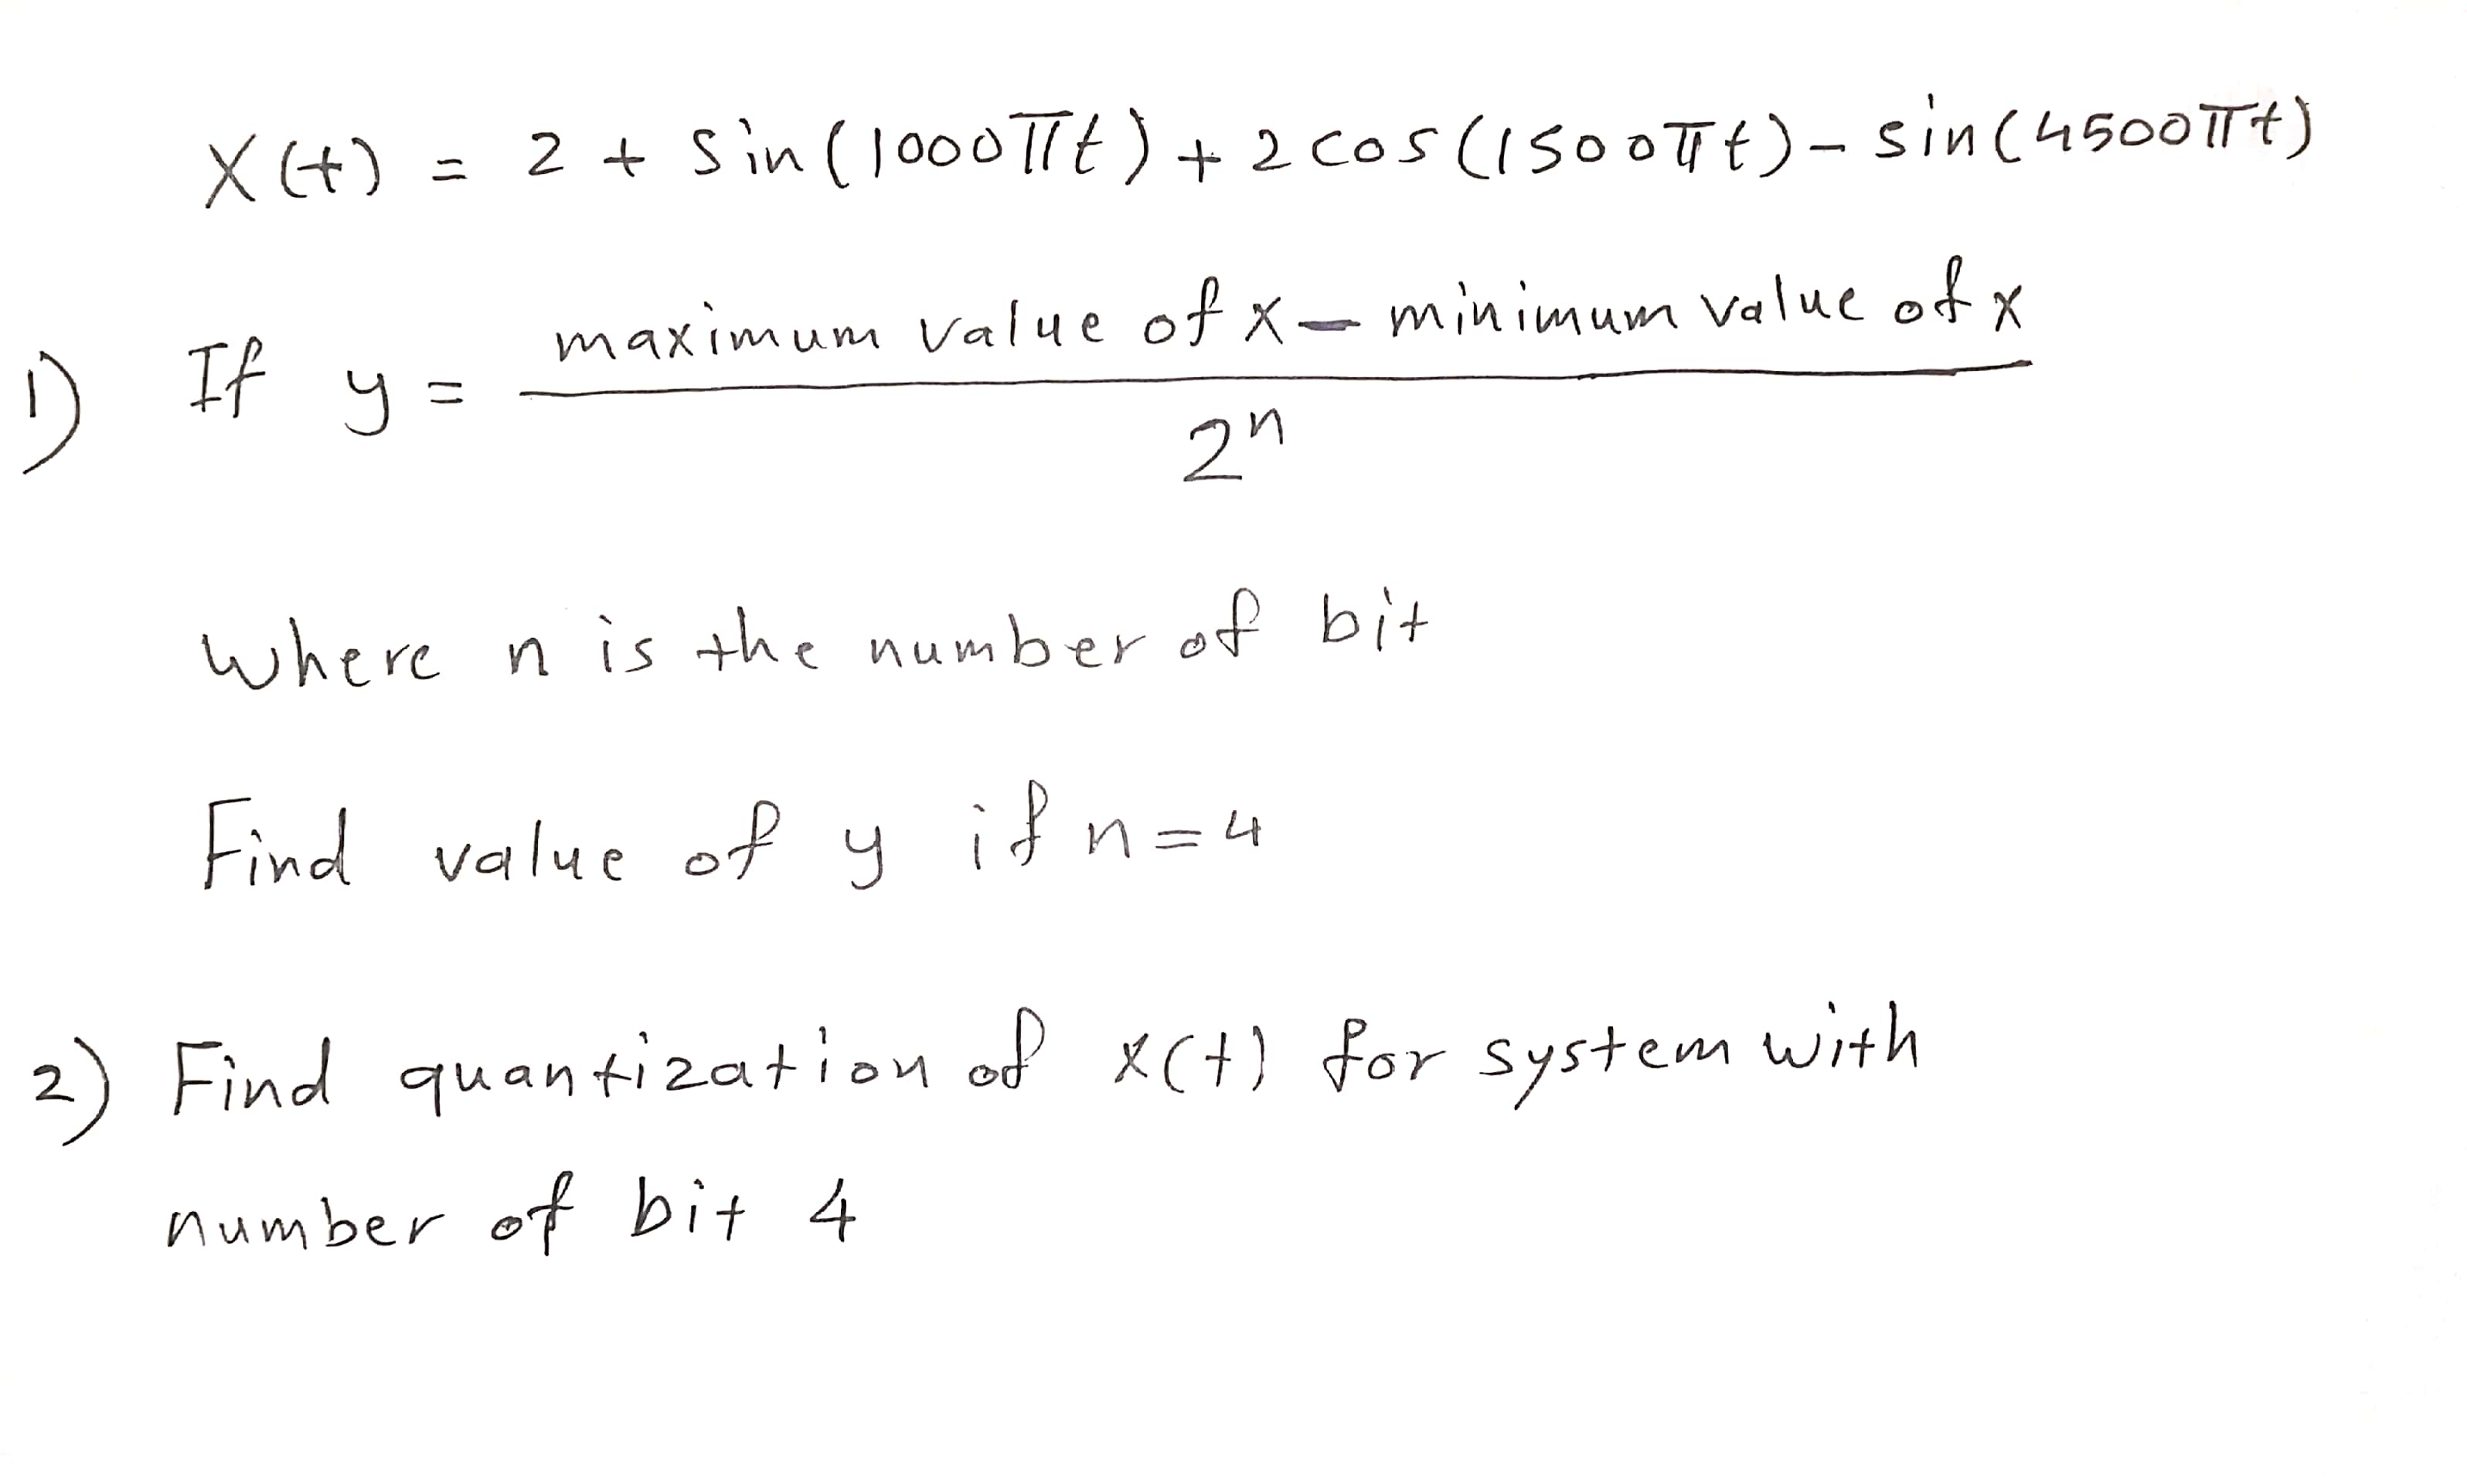 X(t) = 2 + sin(1000πt) + 2cos(1500πt) - sin(4500πt)
1) If y = maximum value of x - minimum value of x
2^n
Where n is the number of bit
Find value of y if n=4
2) Find quantization of x(t) for system with
number of bit 4